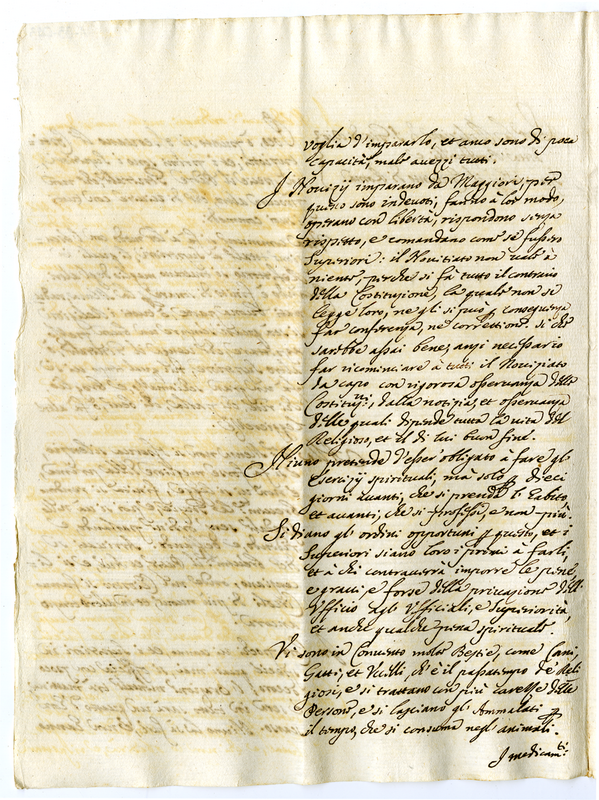 voglia d'impararlo, et anco sono di poca
capacità, male avezzi tutti.
I Novizij imparano da Maggiori, per
questo sono indevoti, fanno à lor modo,
operano con libertà, rispondono senza
rispetto, e comandano come se fussero
Superiori: il Novitiato non vale à
niente, perche si fà tutto il contrario
della Costituzione, la quale non si
legge loro, ne gli si può p consequenza
far conferenza, ne corretione. Si che
sarebbe assai bene, anzi necessario
far ricominciare à tutti il Noviziato
da capo con rigorosa osservanza delle
Costituz.ni, dalla notizia, et osservanza
delle quali dipende tutta la vita del
Religioso, et il di lui buon fine.
Niuno pretende d'esser obligato à fare gli
Esercizij spirituali, mà solo p dieci
giorni avanti, che si prende l'Habito,
et avanti, che si professi, e non più.
Si diano gl'ordini opportuni p questo, et i
Superiori siano loro i primi à farli,
et à chi contraverrà imporre le pene
e gravi, e forse della privazione dell'
Ufficio agl'Ufficiali, e superiorità,
et anche qualche pena spirituale.
Vi sono in Convento molte Bestie, come Cani,
Gatti, et Uccelli, ch'è il passatempo de Reli
giosi, e si trattano con più carezze delle
Persone, e si lasciano gl'Ammalati p
il tempo, che si consuma negl'animali.
I medicam.ti